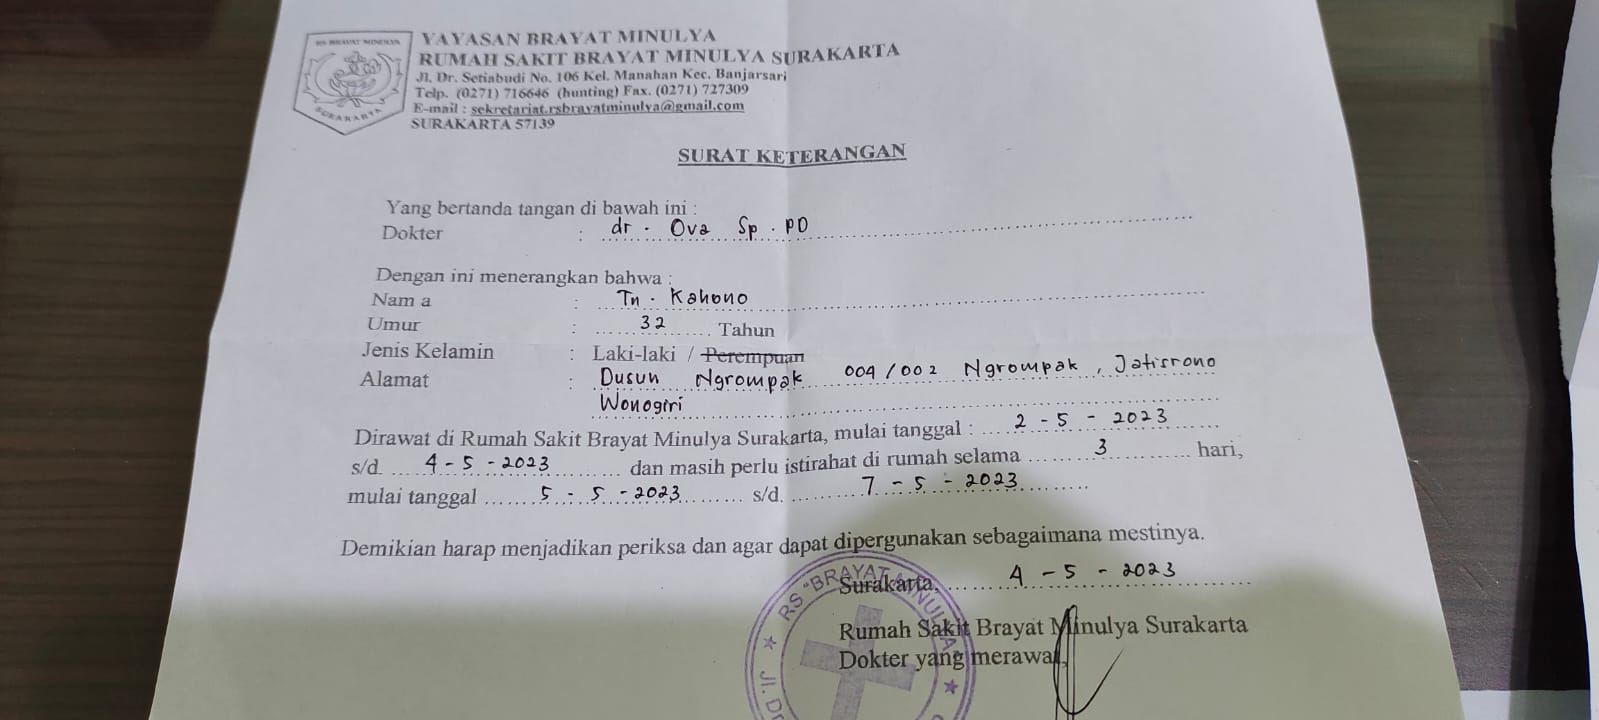 RS BRAYAT MINULYA
SURAKARTA
YAYASAN BRAYAT MINULYA
RUMAH SAKIT BRAYAT MINULYA SURAKARTA
Jl. Dr. Setiabudi No. 106 Kel. Manahan Kec. Banjarsari
Telp. (0271) 716646 (hunting) Fax. (0271) 727309
E-mail : sekretariat.rsbrayatminulya@gmail.com
SURAKARTA 57139
SURAT KETERANGAN
Yang bertanda tangan di bawah ini :
Dokter : dr. Ova Sp.PD
Dengan ini menerangkan bahwa :
Nam a : Tn. Kahono
Umur : 32 Tahun
Jenis Kelamin : Laki-laki / Perempuan
Alamat : Dusun Ngrompak 004/002 Ngrompak, Jatisrono
Wonogiri
Dirawat di Rumah Sakit Brayat Minulya Surakarta, mulai tanggal : 2 - 5 - 2023
s/d. 4 - 5 - 2023 dan masih perlu istirahat di rumah selama 3 hari,
mulai tanggal 5 - 5 - 2023 s/d. 7 - 5 - 2023
Demikian harap menjadikan periksa dan agar dapat dipergunakan sebagaimana mestinya.
Surakarta, 4 - 5 - 2023
Rumah Sakit Brayat Minulya Surakarta
Dokter yang merawat,
RS "BRAYAT MINULYA"
Jl. Dr